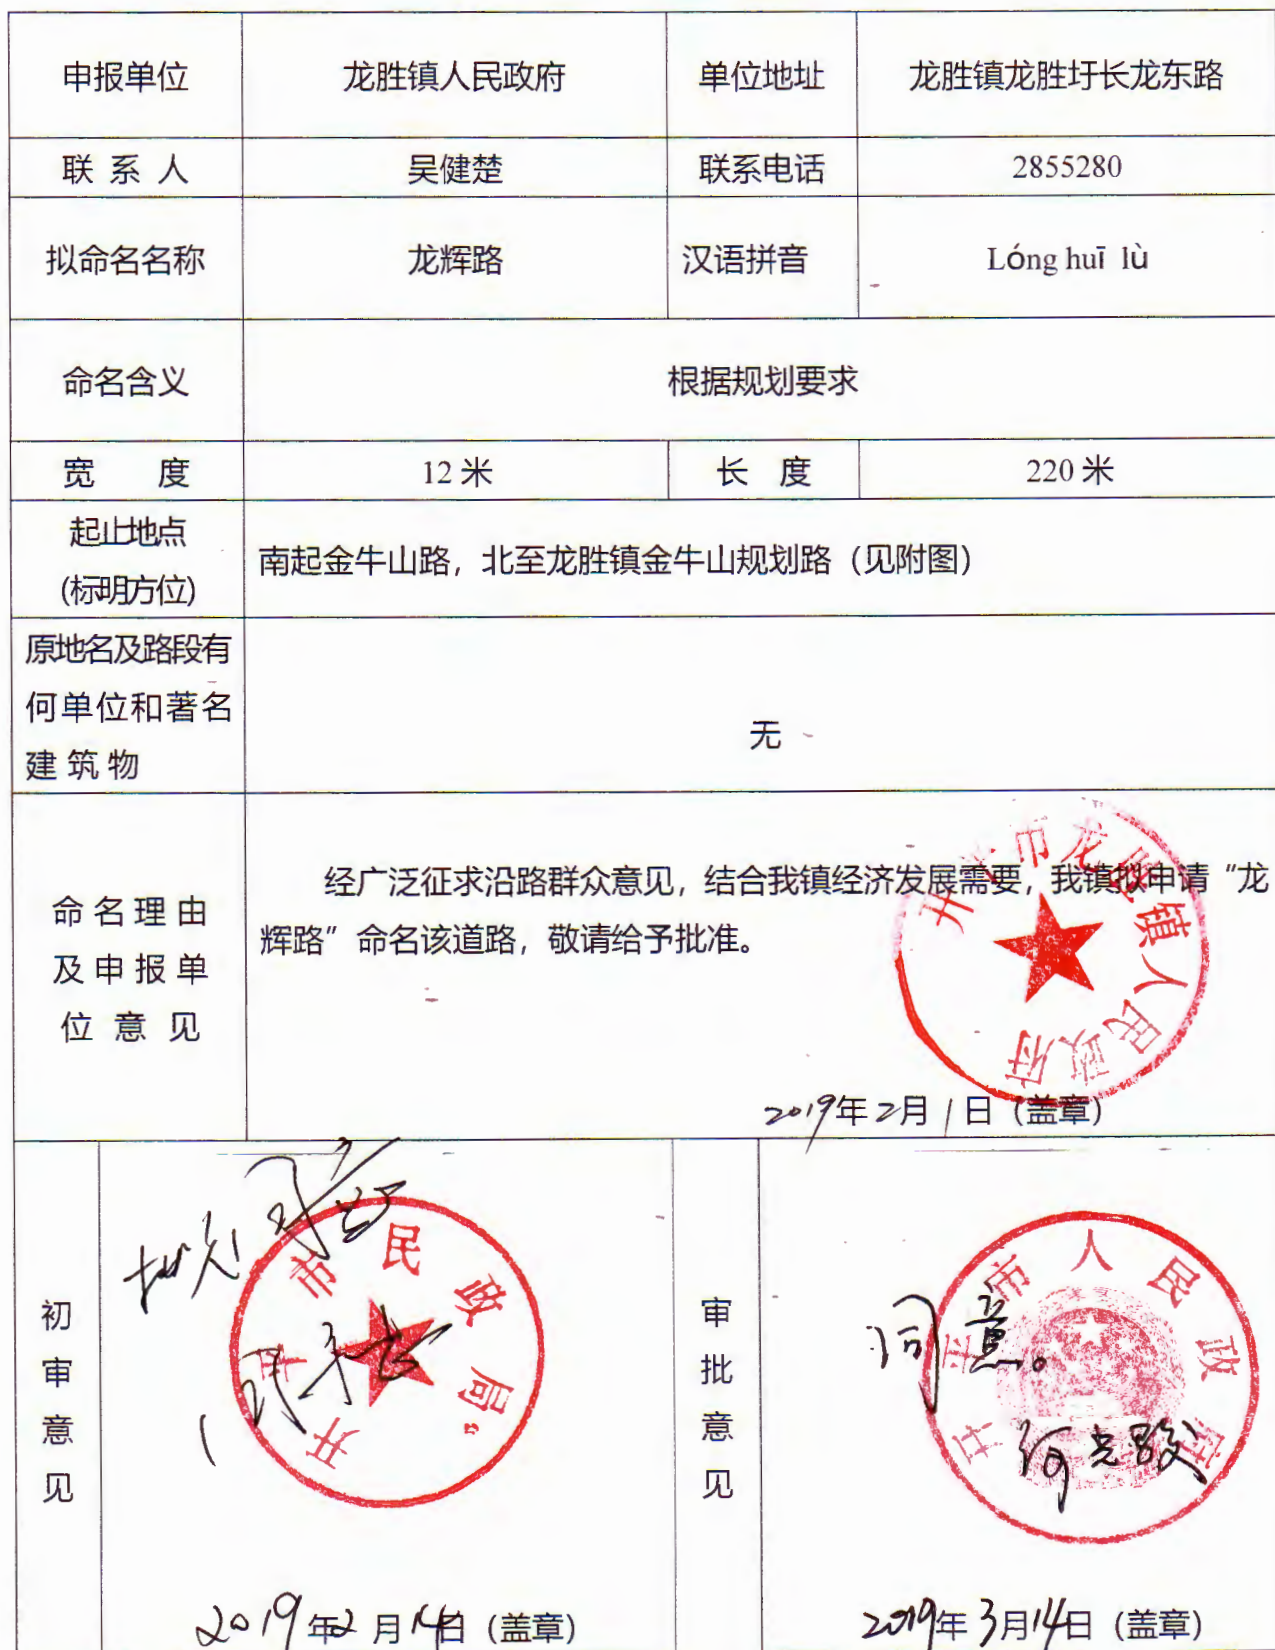 申报单位 龙胜镇人民政府 单位地址 龙胜镇龙胜圩长龙东路
联系人 吴健楚 联系电话 2855280
拟命名名称 龙辉路 汉语拼音 Lóng huī lù
命名含义 根据规划要求
宽度 12米 长度 220米
起止地点
(标明方位)
南起金牛山路，北至龙胜镇金牛山规划路（见附图）
原地名及路段有
何单位和著名
建筑物
无
命名理由
及申报单
位意见
经广泛征求沿路群众意见，结合我镇经济发展需要，我镇拟申请“龙
辉路”命名该道路，敬请给予批准。
开平市龙胜镇人民政府
2019年2月1日（盖章）
初审意见
开平市民政局
2019年2月14日（盖章）
审批意见
同意。
开平市人民政府
2019年3月14日（盖章）